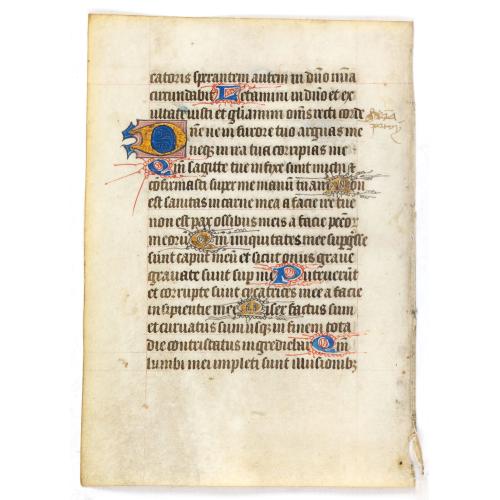 catoris sperantem autem in dño mia
circundabit Letamini in dño et ex
ultate iusti et gliamini oms recti corde
Dñe ne in furore tuo arguas me
neqz in ira tua corripias me
Qm sagitte tue infixe sunt michi et
cōfirmasti supr me manū tuam Non
est sanitas in carne mea a facie ire tue
non est pax ossibus meis a facie peccor
meorū Qm iniquitates mee supgsse
sunt caput meū et sicut onus grave
gravate sunt sup me Putruerūt
et corrupte sunt cicatrices mee a facie
insipientie mee Miser factus sum
et curvatus sum usqz in finem tota
die contristatus ingrediebar Qm
lumbi mei impleti sunt illusionibz